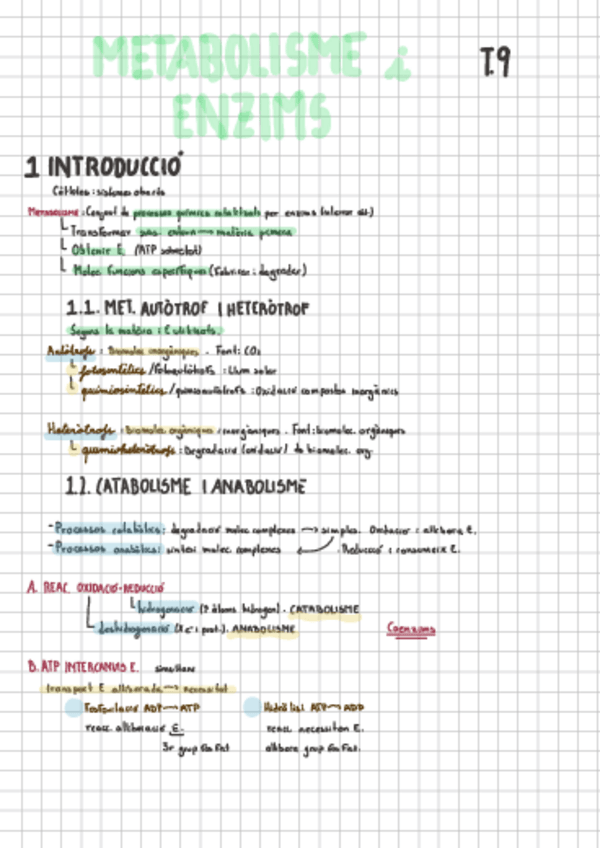 METABOLISME i
T.9
ENZIMS
1 INTRODUCCIÓ
Cèl·lules: sistemes oberts
METABOLISME: Conjunt de processos químics catalitzats per enzims
Transformar matèria primera
Obtenir E. (ATP sobretot)
Molec funcions específiques (fabricar i degradar)
1.1. MET. AUTÒTROF I HETERÒTROF
Segons la matèria i E utilitzats.
Autòtrofs: Biomolec inorgàniques. Font: CO2
fotosintètics / fotoautòtrofs: Llum solar
quimiosintètics / quimioautòtrofs: Oxidació compostos inorgànics
Heteròtrofs: Biomolec orgàniques i inorgàniques. Font: biomolec. orgàniques
quimioheteròtrofs: Degradació (oxidació) de biomolec. org.
1.2. CATABOLISME I ANABOLISME
- Processos catabòlics: degradació molec complexes → simples. Oxidació i allibera E.
- Processos anabòlics: síntesi molec complexes Reducció i consumeix E.
A. REAC. OXIDACIÓ-REDUCCIÓ
hidrogenació (↑ àtoms hidrogen). CATABOLISME
deshidrogenació (2 e- i prot.). ANABOLISME
Coenzims
B. ATP INTERCANVIS E.
transport E alliberada → necessitat
Fosforilació ADP → ATP
Hidròlisi ATP → ADP
reacc. alliberació E.
reacc. necessiten E.
3r grup fosfat
allibera grup fosfat.